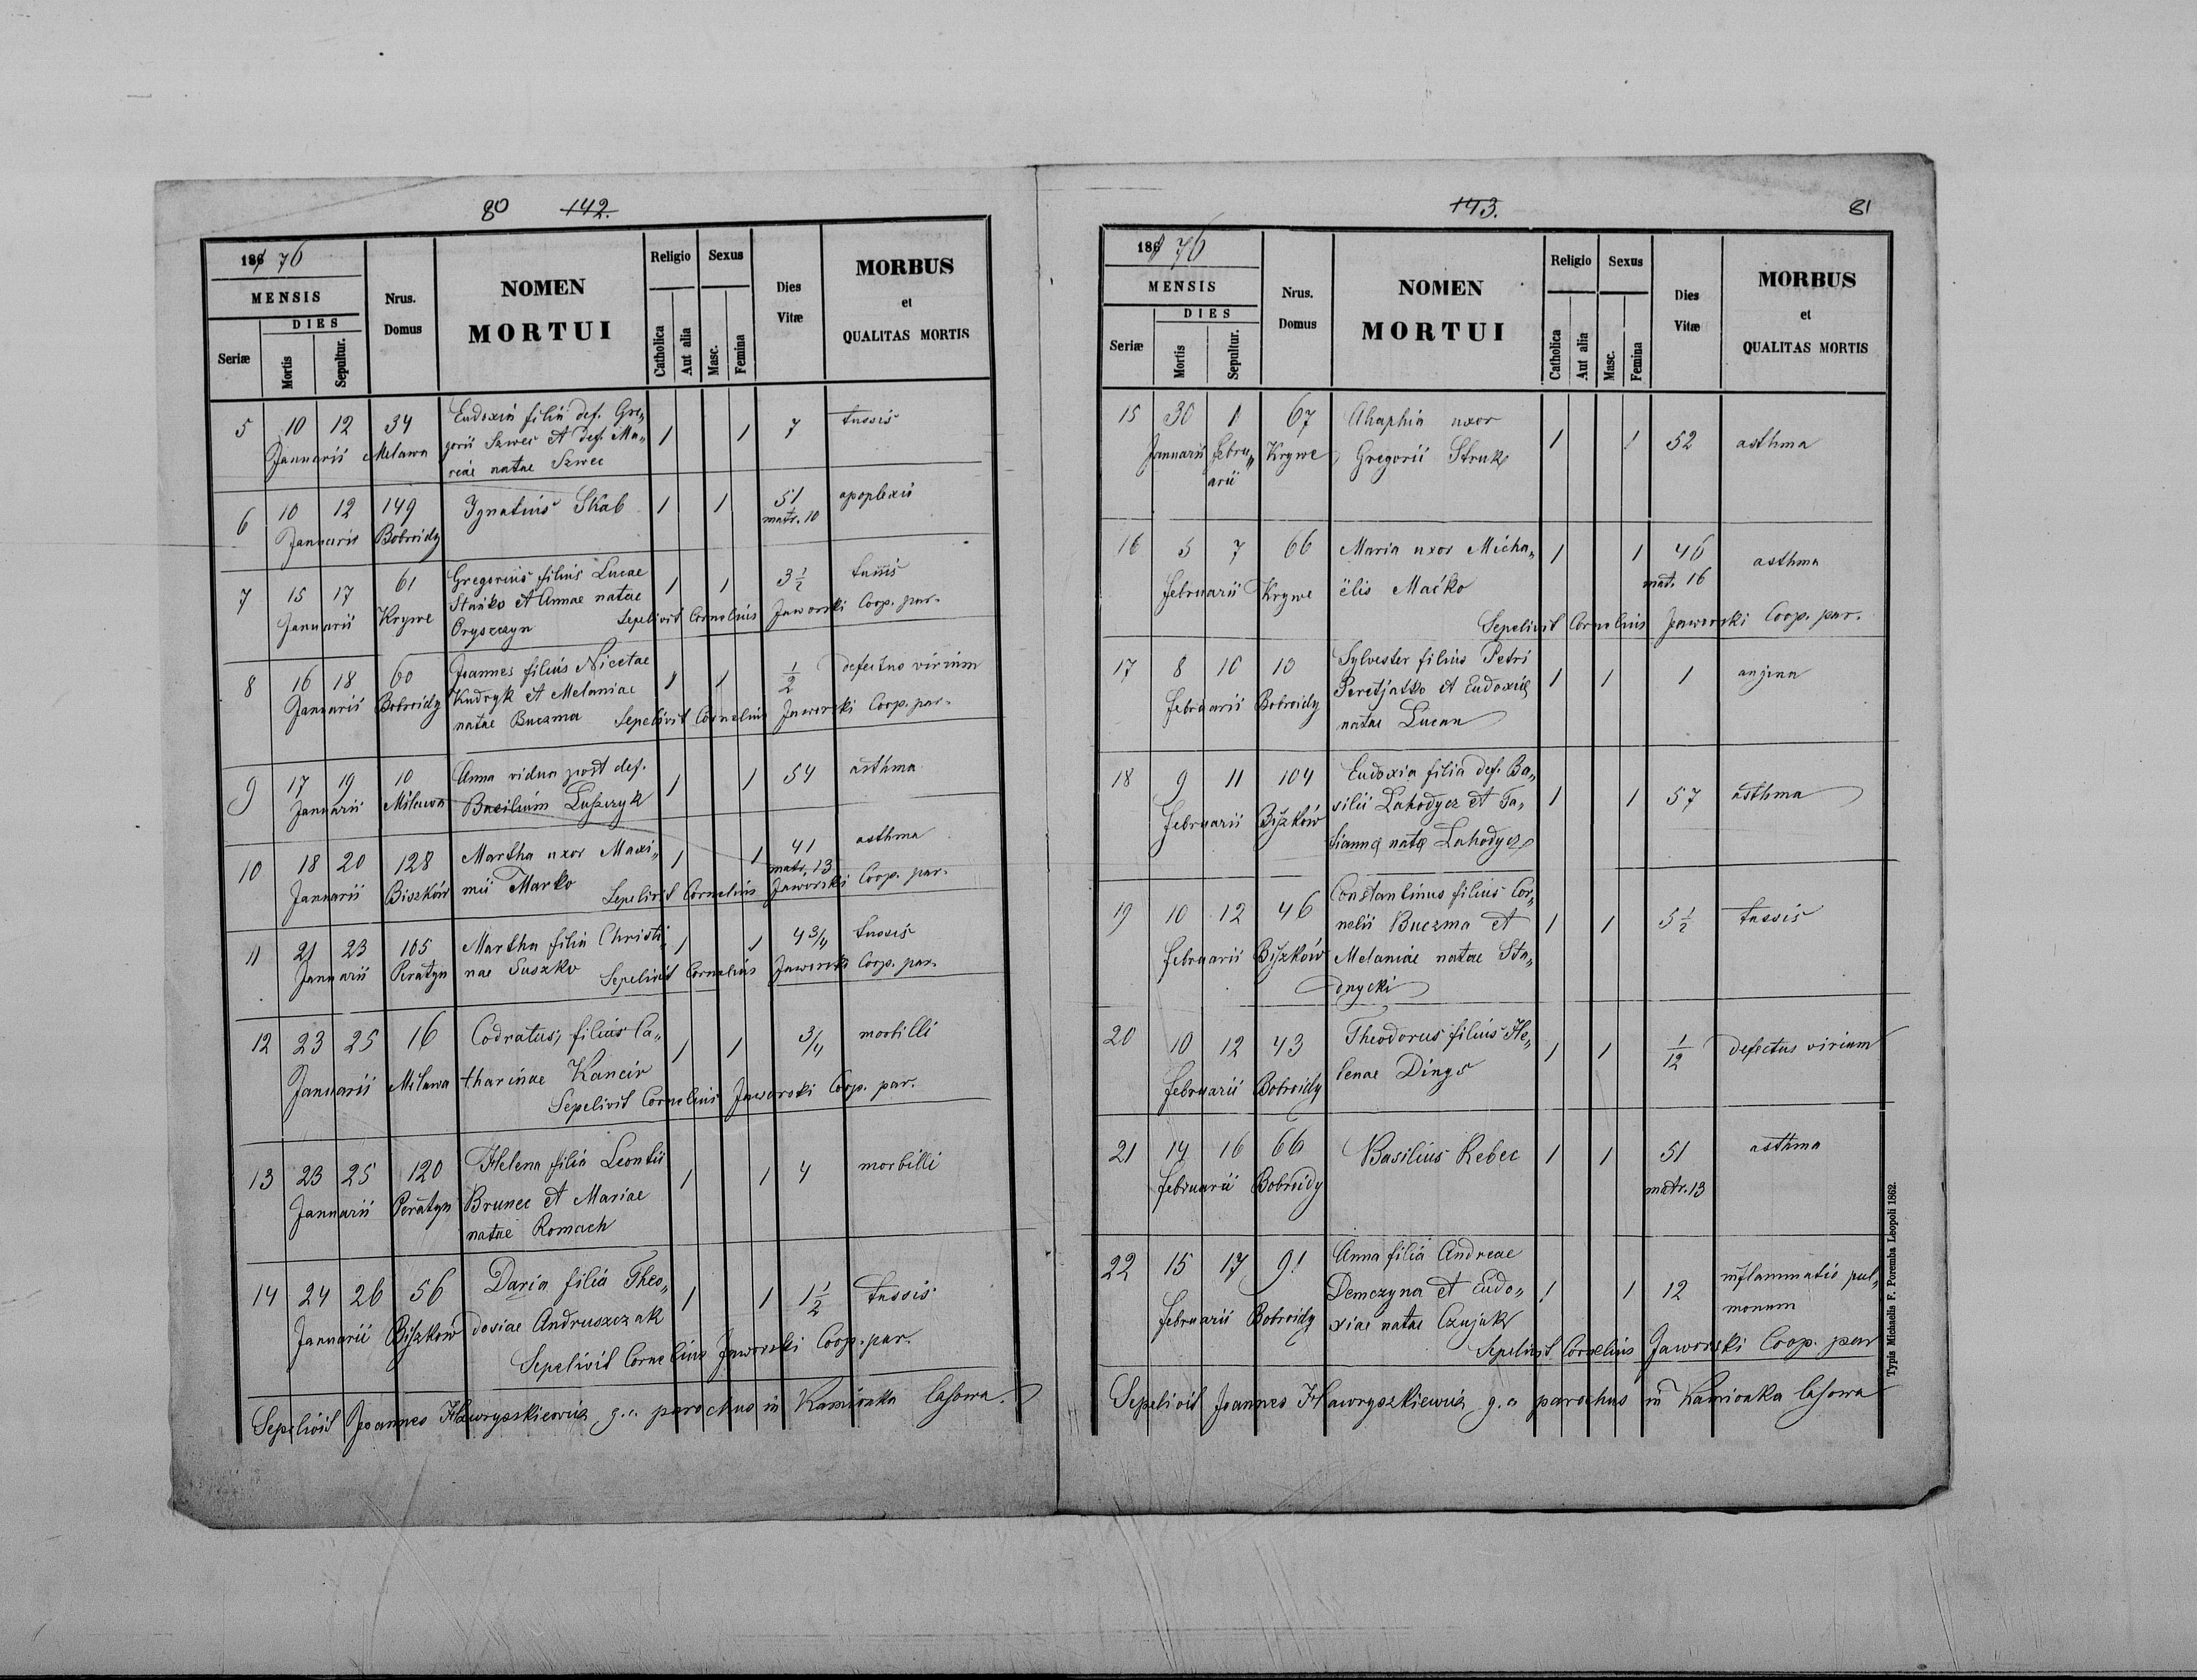 80 142.
186 76
MENSIS
DIES
Seriæ Mortis Sepultur.
Nrus. Domus
NOMEN
MORTUI
Religio
Catholica Aut alia
Sexus
Masc. Femina
Dies Vitæ
MORBUS
et
QUALITAS MORTIS
5 10 12 34 Eudoxia filia def. Gre„ 1 1 7 tussis
Januarii Milawa gorii Szwec et def. Ma„
riae natae Szwec
6 10 12 149 Ignatius Skab 1 1 51 apoplexis
Januarii Bobroidy matr. 10
7 15 17 61 Gregorius filius Lucae 1 1 3 1/2 tussis
Januarii Krywe Stańko et Annae natae
Oryszczyn Sepelivit Cornelius Jaworski Coop. par.
8 16 18 60 Joannes filius Nicetae 1 1 1/2 defectus virium
Januarii Bobroidy Kudryk et Melaniae
natae Buczma Sepelivit Cornelius Jaworski Coop. par.
9 17 19 10 Anna vidua post def. 1 1 54 asthma
Januarii Milawa Basilium Luszczyk
10 18 20 128 Martha uxor Maxi„ 1 1 41 asthma
Januarii Biszków mii Marko matr. 13
Sepelivit Cornelius Jaworski Coop. par.
11 21 23 105 Martha filia Christi„ 1 1 4 3/4 tussis
Januarii Peratyn nae Suszko Sepelivit Cornelius Jaworski Coop. par.
12 23 25 16 Codratus, filius Ca„ 1 1 3/4 morbilli
Januarii Milawa tharinae Kancir
Sepelivit Cornelius Jaworski Coop. par.
13 23 25 120 Helena filia Leontii 1 1 4 morbilli
Januarii Peratyn Brunec et Mariae
natae Romach
14 24 26 56 Daria filia Theo„ 1 1 1 1/2 tussis
Januarii Biszków dosiae Andruszczak
Sepelivit Cornelius Jaworski Coop. par.
Sepelivit Joannes Hawryszkiewicz g. c. parochus in Kamionka lasowa.
143. 81
186 76
MENSIS
DIES
Seriæ Mortis Sepultur.
Nrus. Domus
NOMEN
MORTUI
Religio
Catholica Aut alia
Sexus
Masc. Femina
Dies Vitæ
MORBUS
et
QUALITAS MORTIS
15 30 1 67 Ahaphia uxor 1 1 52 asthma
Januarii Febru„ Krywe Gregorii Struk
arii
16 5 7 66 Maria uxor Micha„ 1 1 46 asthma
Februarii Krywe ëlis Maćko matr. 16
Sepelivit Cornelius Jaworski Coop. par.
17 8 10 13 Sylvester filius Petri 1 1 1 angina
Februarii Bobroidy Peretjatko et Eudoxiae
natae Lucan
18 9 11 104 Eudoxia filia def. Ba„ 1 1 57 asthma
Februarii Biszków silii Lahodycz et Ta„
tiannæ natæ Lahodycz
19 10 12 46 Constantinus filius Cor„ 1 1 5 1/2 tussis
Februarii Biszków nelii Buczma et
Melaniae natae Sta„
dnycki
20 10 12 43 Theodorus filius He„ 1 1 1/12 defectus virium
Februarii Bobroidy lenae Dings
21 14 16 66 Basilius Rebec 1 1 51 asthma
Februarii Bobroidy matr. 13
22 15 17 91 Anna filia Andreae 1 1 12 inflammatio pul„
Februarii Bobroidy Demczyna et Eudo„ monum
xiae natae Czujak
Sepelivit Cornelius Jaworski Coop. par
Sepelivit Joannes Hawryszkiewicz g. c. parochus in Kamionka lasowa
Typis Michaelis F. Poremba Leopoli 1862.